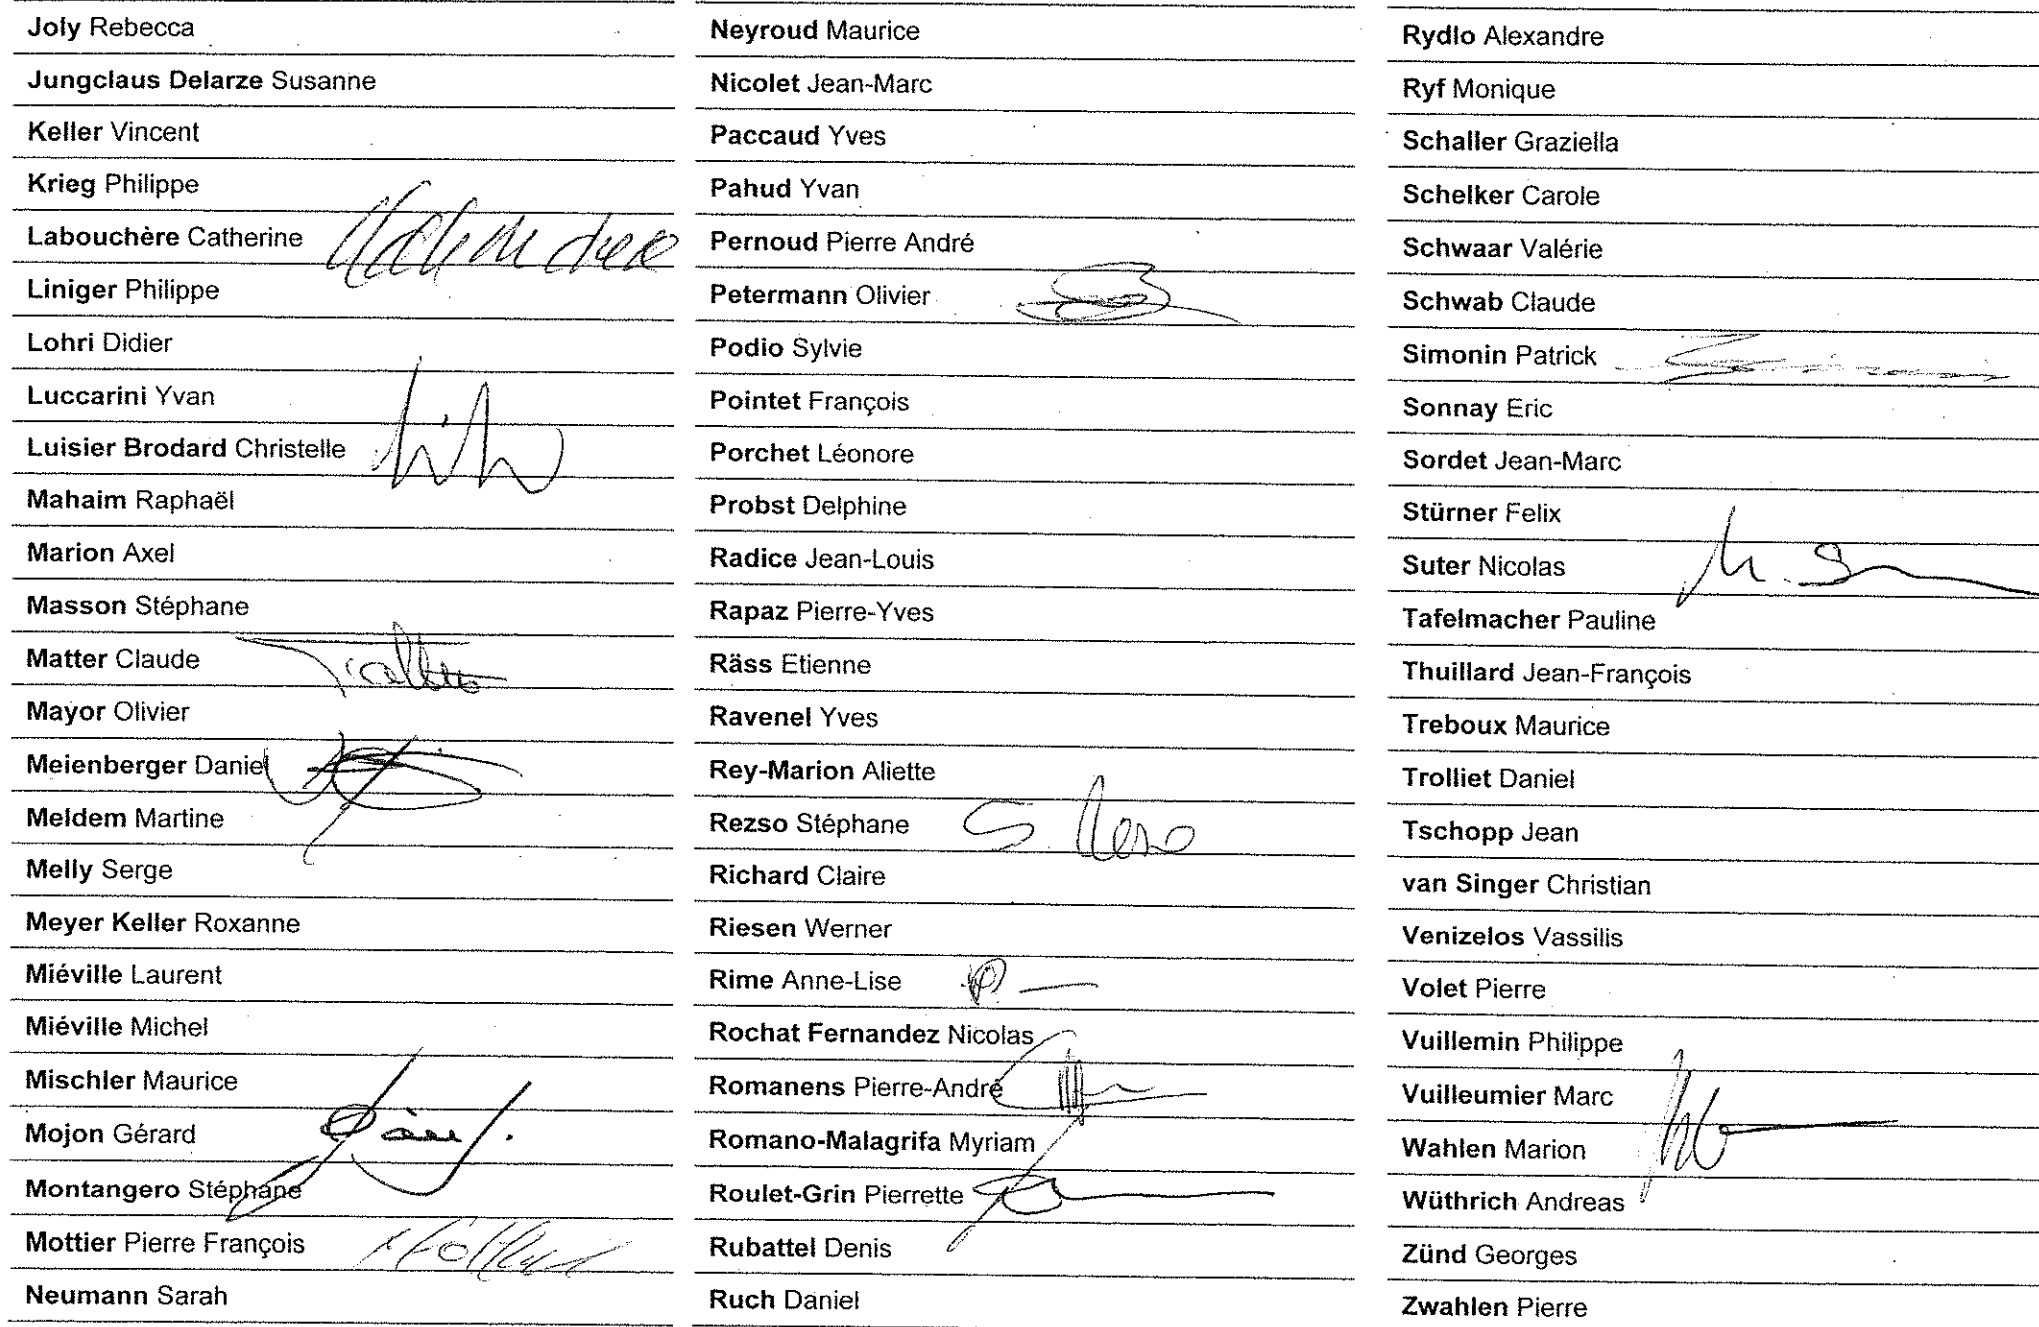 Joly Rebecca
Jungclaus Delarze Susanne
Keller Vincent
Krieg Philippe
Labouchère Catherine
Liniger Philippe
Lohri Didier
Luccarini Yvan
Luisier Brodard Christelle
Mahaim Raphaël
Marion Axel
Masson Stéphane
Matter Claude
Mayor Olivier
Meienberger Daniel
Meldem Martine
Melly Serge
Meyer Keller Roxanne
Miéville Laurent
Miéville Michel
Mischler Maurice
Mojon Gérard
Montangero Stéphane
Mottier Pierre François
Neumann Sarah
Neyroud Maurice
Nicolet Jean-Marc
Paccaud Yves
Pahud Yvan
Pernoud Pierre André
Petermann Olivier
Podio Sylvie
Pointet François
Porchet Léonore
Probst Delphine
Radice Jean-Louis
Rapaz Pierre-Yves
Räss Etienne
Ravenel Yves
Rey-Marion Aliette
Rezso Stéphane S. Rezso
Richard Claire
Riesen Werner
Rime Anne-Lise
Rochat Fernandez Nicolas
Romanens Pierre-André
Romano-Malagrifa Myriam
Roulet-Grin Pierrette
Rubattel Denis
Ruch Daniel
Rydlo Alexandre
Ryf Monique
Schaller Graziella
Schelker Carole
Schwaar Valérie
Schwab Claude
Simonin Patrick
Sonnay Eric
Sordet Jean-Marc
Stürner Felix
Suter Nicolas
Tafelmacher Pauline
Thuillard Jean-François
Treboux Maurice
Trolliet Daniel
Tschopp Jean
van Singer Christian
Venizelos Vassilis
Volet Pierre
Vuillemin Philippe
Vuilleumier Marc
Wahlen Marion
Wüthrich Andreas
Zünd Georges
Zwahlen Pierre